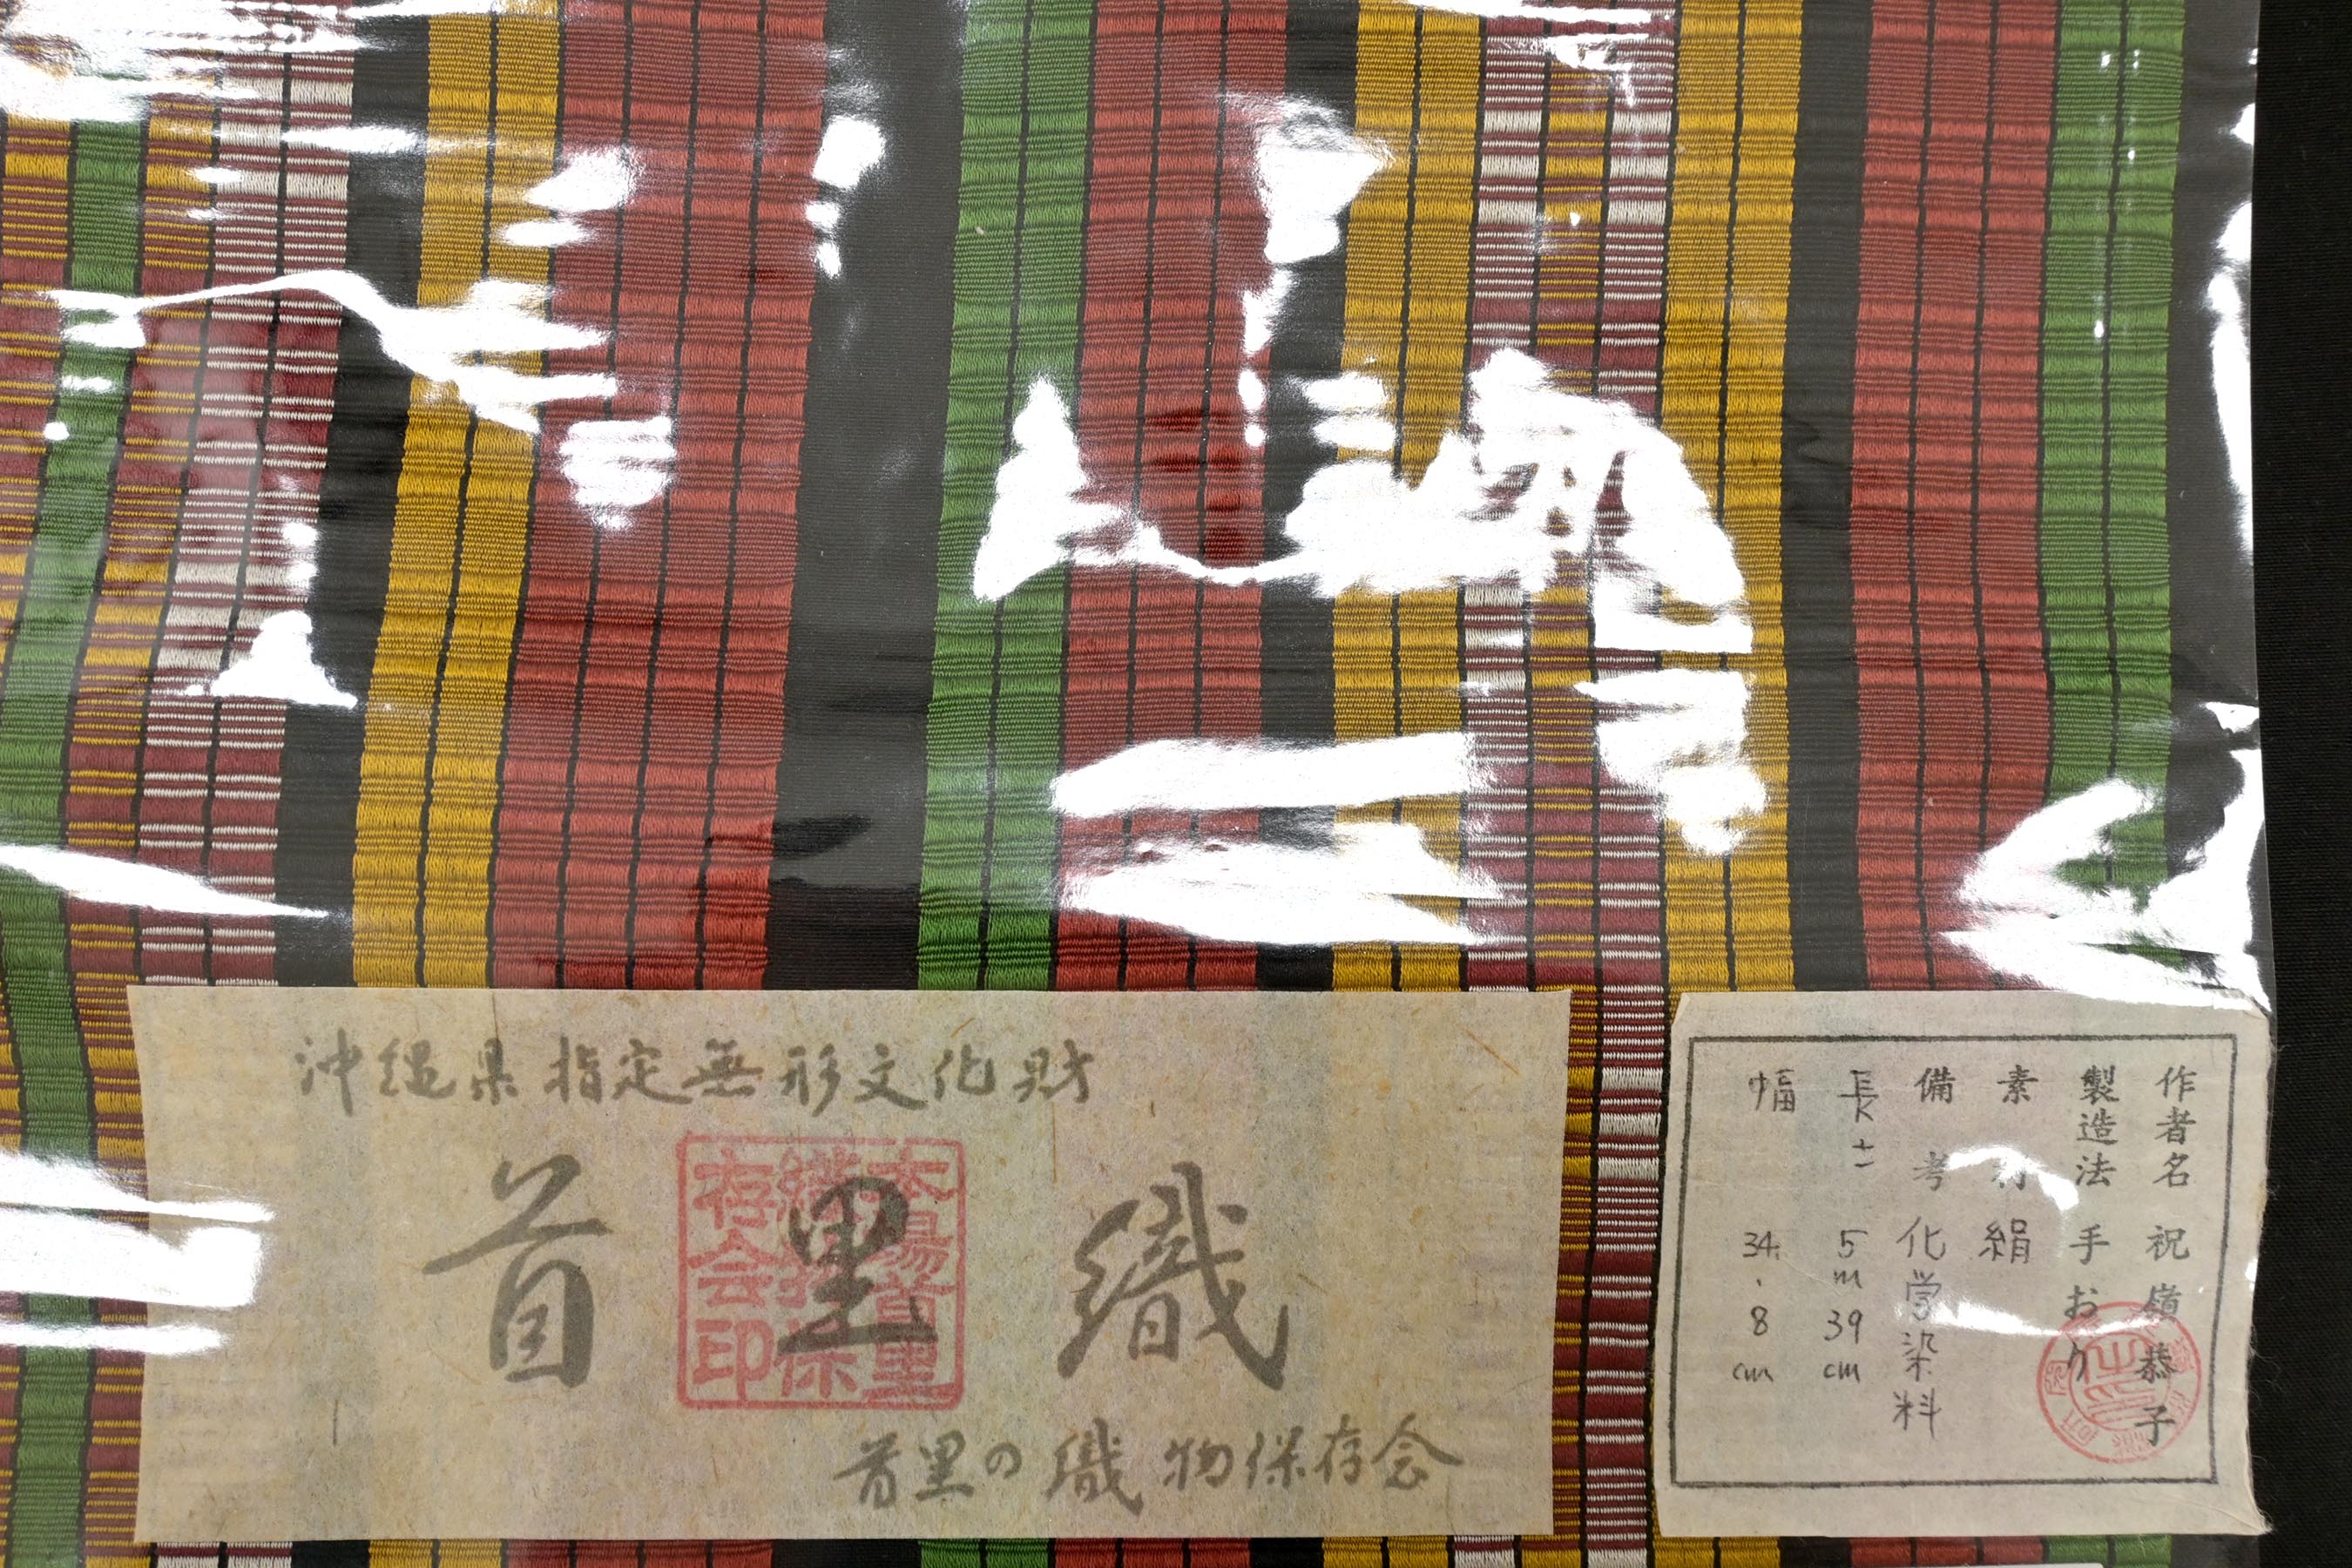 沖縄県指定無形文化財
首里織
本場首里
織物保
存会印
首里の織物保存会
作者名 祝嶺恭子
製造法 手おり
素材 絹
備考 化学染料
長サ 5m39cm
幅 34.8cm